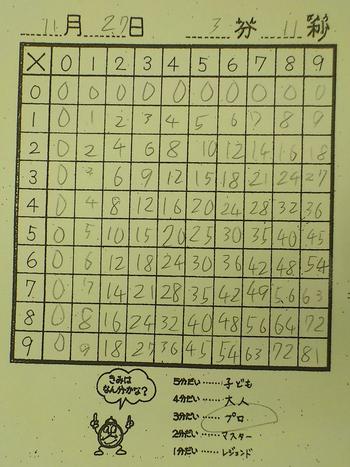 11月27日 3分11秒
× 0 1 2 3 4 5 6 7 8 9
0 0 0 0 0 0 0 0 0 0 0
1 0 1 2 3 4 5 6 7 8 9
2 0 2 4 6 8 10 12 14 16 18
3 0 3 6 9 12 15 18 21 24 27
4 0 4 8 12 16 20 24 28 32 36
5 0 5 10 15 20 25 30 35 40 45
6 0 6 12 18 24 30 36 42 48 54
7 0 7 14 21 28 35 42 49 56 63
8 0 8 16 24 32 40 48 56 64 72
9 0 9 18 27 36 45 54 63 72 81
きみは
なん分かな?
5分だい……子ども
4分だい……大人
3分だい……プロ
2分だい……マスター
1分だい……レジェンド